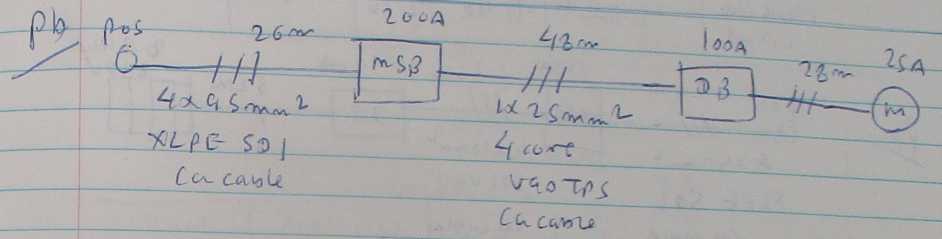 pb
pos
26m
200A
MSB
48m
100A
DB
28m
25A
M
4x95mm²
XLPE SDI
Cu cable
1x25mm²
4 core
V90 TPS
Cu cable